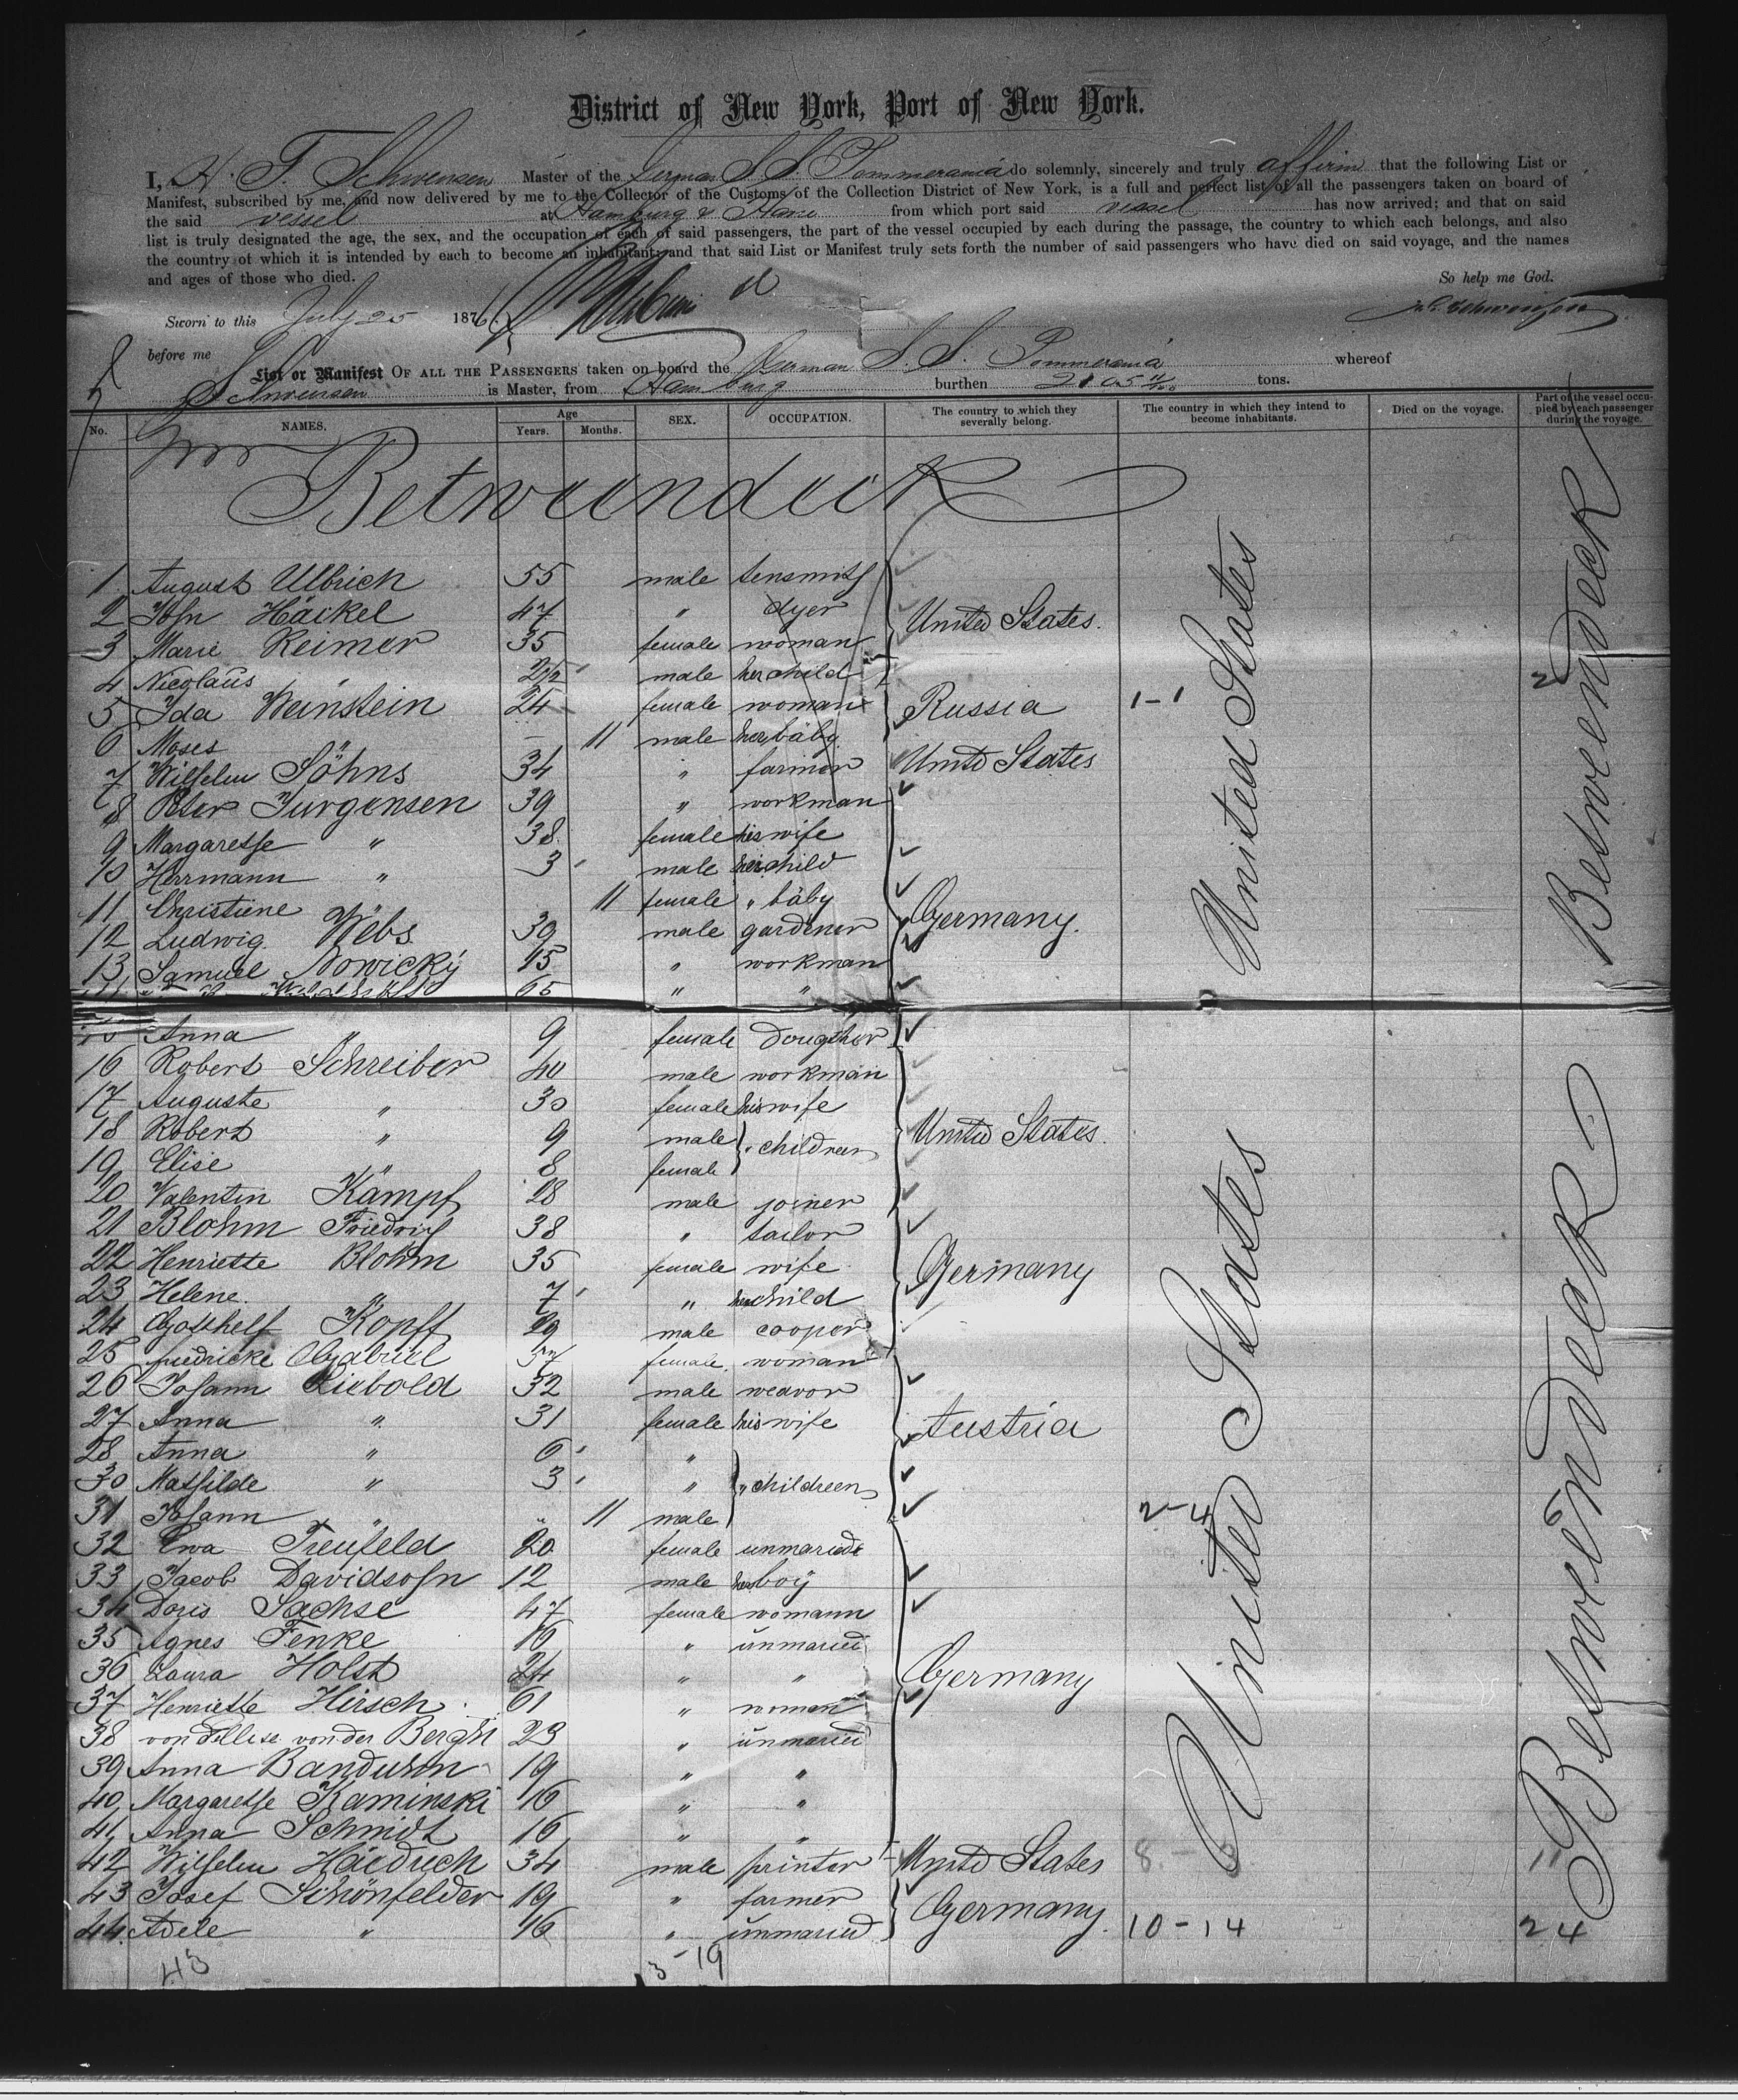 District of New York, Port of New York.
I, H. F. Schwensen Master of the German S. S. Pommerania do solemnly, sincerely and truly affirm that the following List or
Manifest, subscribed by me, and now delivered by me to the Collector of the Customs of the Collection District of New York, is a full and perfect list of all the passengers taken on board of
the said vessel at Hamburg & Havre from which port said vessel has now arrived; and that on said
list is truly designated the age, the sex, and the occupation of each of said passengers, the part of the vessel occupied by each during the passage, the country to which each belongs, and also
the country of which it is intended by each to become an inhabitant; and that said List or Manifest truly sets forth the number of said passengers who have died on said voyage, and the names
and ages of those who died. So help me God.
Sworn to this July 25 1876
before me
List or Manifest OF ALL THE PASSENGERS taken on board the German S. S. Pommerania whereof
Schwensen is Master, from Hamburg burthen tons.
No. NAMES. Age Years. Months. SEX. OCCUPATION. The country to which they severally belong. The country in which they intend to become inhabitants. Died on the voyage. Part of the vessel occupied by each passenger during the voyage.
Betweendeck
1 August Ullrich 55 male tensmith
2 John Häckel 47 " dyer United States.
3 Marie Reimer 35 female woman
4 Nicolaus " male her child
5 Ida Weinstein 24 female woman Russia 1-1
6 Moses " 11 male her baby
7 Wilhelm Söhns 34 " farmer United States
8 Peter Jurgensen 39 " workman
9 Margarethe " 38 female his wife
10 Herrmann " 3 male her child
11 Christiene " 11 female " baby
12 Ludwig Webs 39 male gardener Germany.
13 Samuel Nowicky 45 " workman
65 " "
15 Anna " 9 female Dougther
16 Robert Schreiber 40 male workman
17 Auguste " 30 female his wife
18 Robert " 9 male " children United States.
19 Elise " 8 female
20 Valentin Kämpf 28 male joiner
21 Blohm Friedrich 38 " tailor
22 Henriette Blohm 35 female wife Germany
23 Helene " 7 " her child
24 Gotthelf Kopff 29 male cooper
25 friedricke Gabriel 37 female woman
26 Johann Liebold 32 male weavor
27 Anna " 31 female his wife Austria
28 Anna " 6 "
30 Mathilde " 3 " " childreen
31 Johann " " 11 male 2-4
32 Ewa Treufeld 20 female unmaried
33 Jacob Davidsohn 12 male her boy
34 Doris Sachse 47 female womann
35 Agnes Fenke 16 " unmaried
36 Laura Holst 24 " " Germany
37 Henriette Hirsch 61 " woman
38 von der Bergh 23 " unmaried
39 Anna Banduhn 19 " "
40 Margarethe Kaminski 16 " "
41 Anna Schmidt 16 " "
42 Wilhelm Häedrich 34 male printer United States 11
43 Josef Schönfelder 19 " farmer
44 Adele " 16 " unmaried Germany. 10-14 24
43 3-19
United States
United States
Betweendeck
Betweendeck